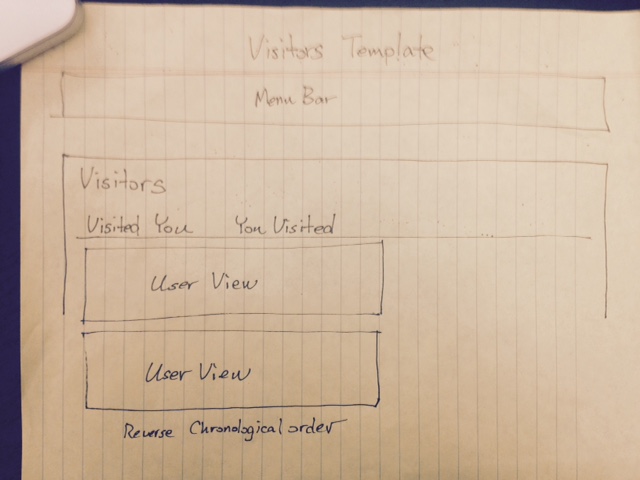 Visitors Template
Menu Bar
Visitors
Visited You You Visited
User View
User View
Reverse Chronological order